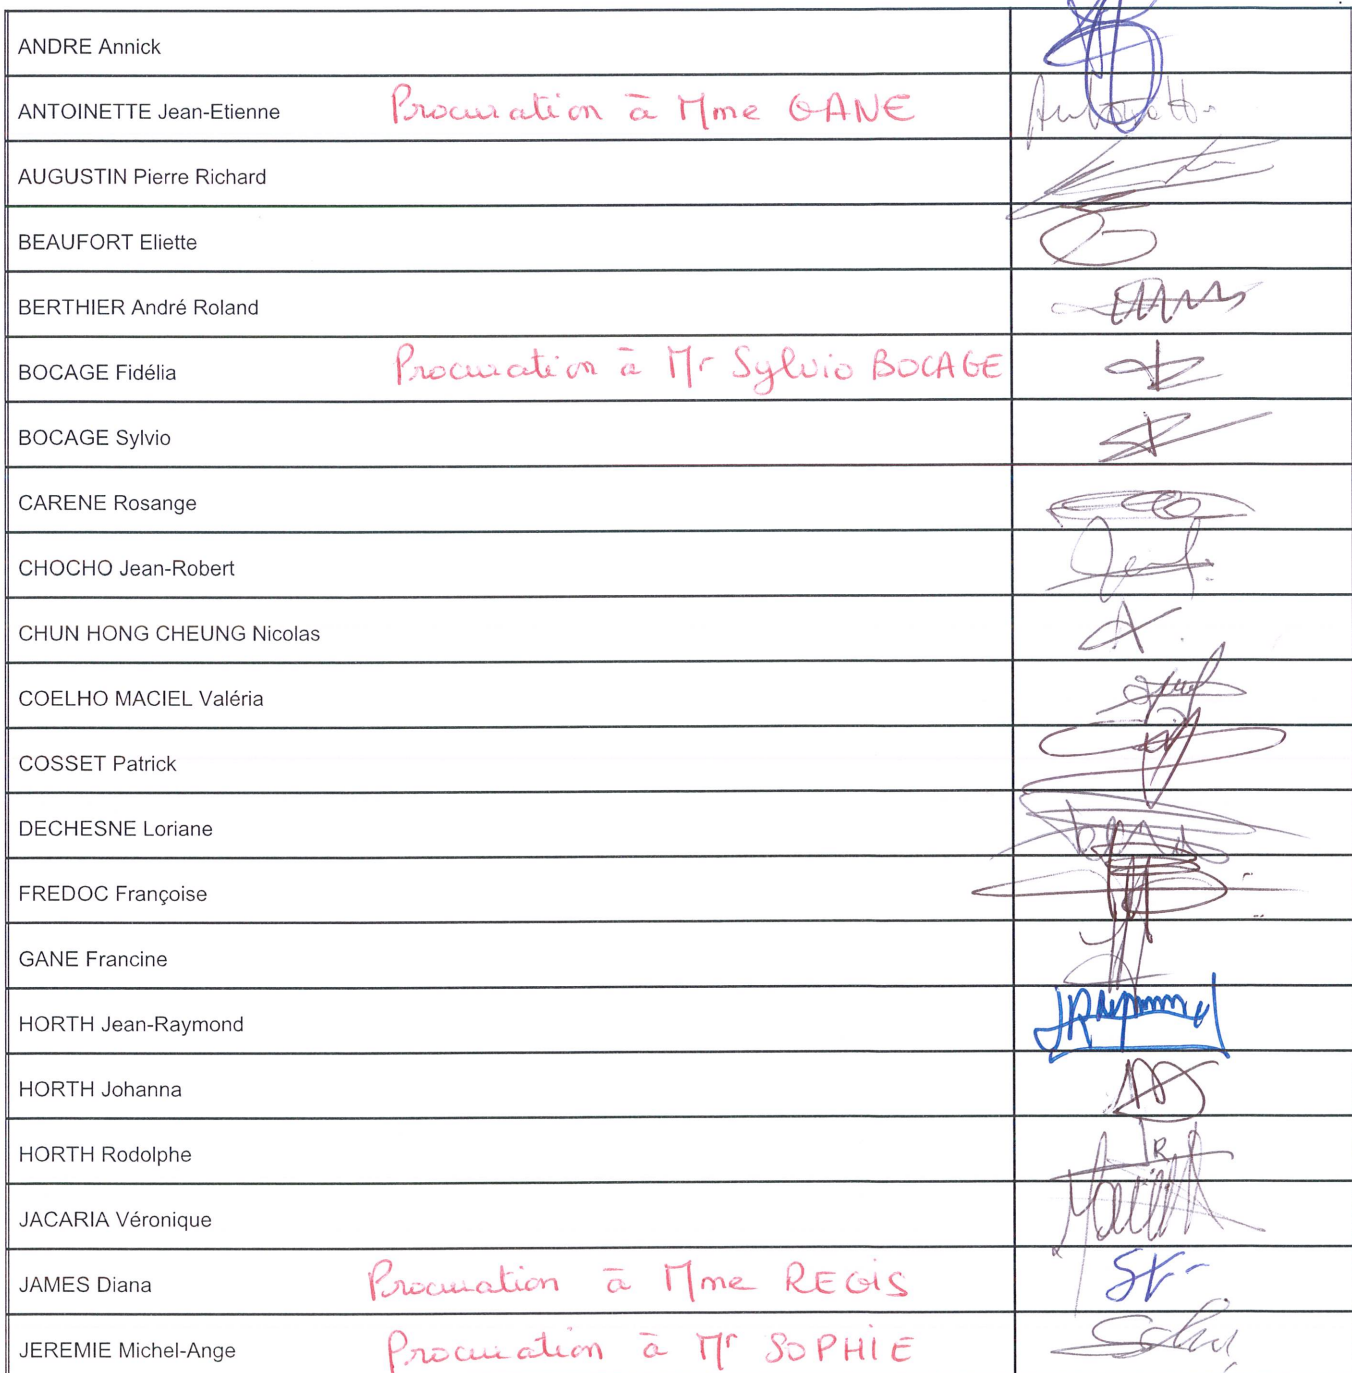 ANDRE Annick
ANTOINETTE Jean-Etienne Procuration à Mme GANE
AUGUSTIN Pierre Richard
BEAUFORT Eliette
BERTHIER André Roland
BOCAGE Fidélia Procuration à Mr Sylvio BOCAGE
BOCAGE Sylvio
CARENE Rosange
CHOCHO Jean-Robert
CHUN HONG CHEUNG Nicolas
COELHO MACIEL Valéria
COSSET Patrick
DECHESNE Loriane
FREDOC Françoise
GANE Francine
HORTH Jean-Raymond
HORTH Johanna
HORTH Rodolphe
JACARIA Véronique
JAMES Diana Procuration à Mme REGIS
JEREMIE Michel-Ange Procuration à Mr SOPHIE